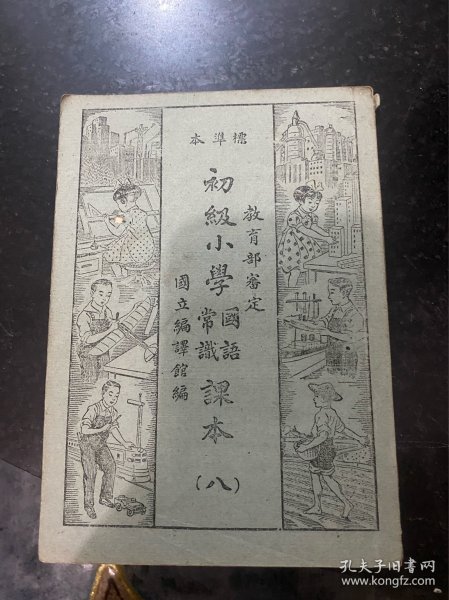 標準本
教育部審定
初級小學國語常識課本(八)
國立編譯館編
孔夫子旧书网
www.kongfz.com